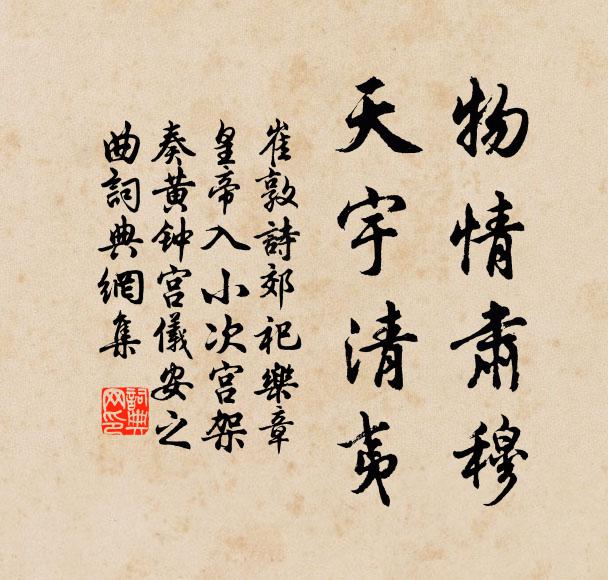 物情肃穆
天宇清夷
崔敦詩郊祀樂章
皇帝入小次宫架
奏黄钟宫儀安之
曲詞典網集
詞典网印